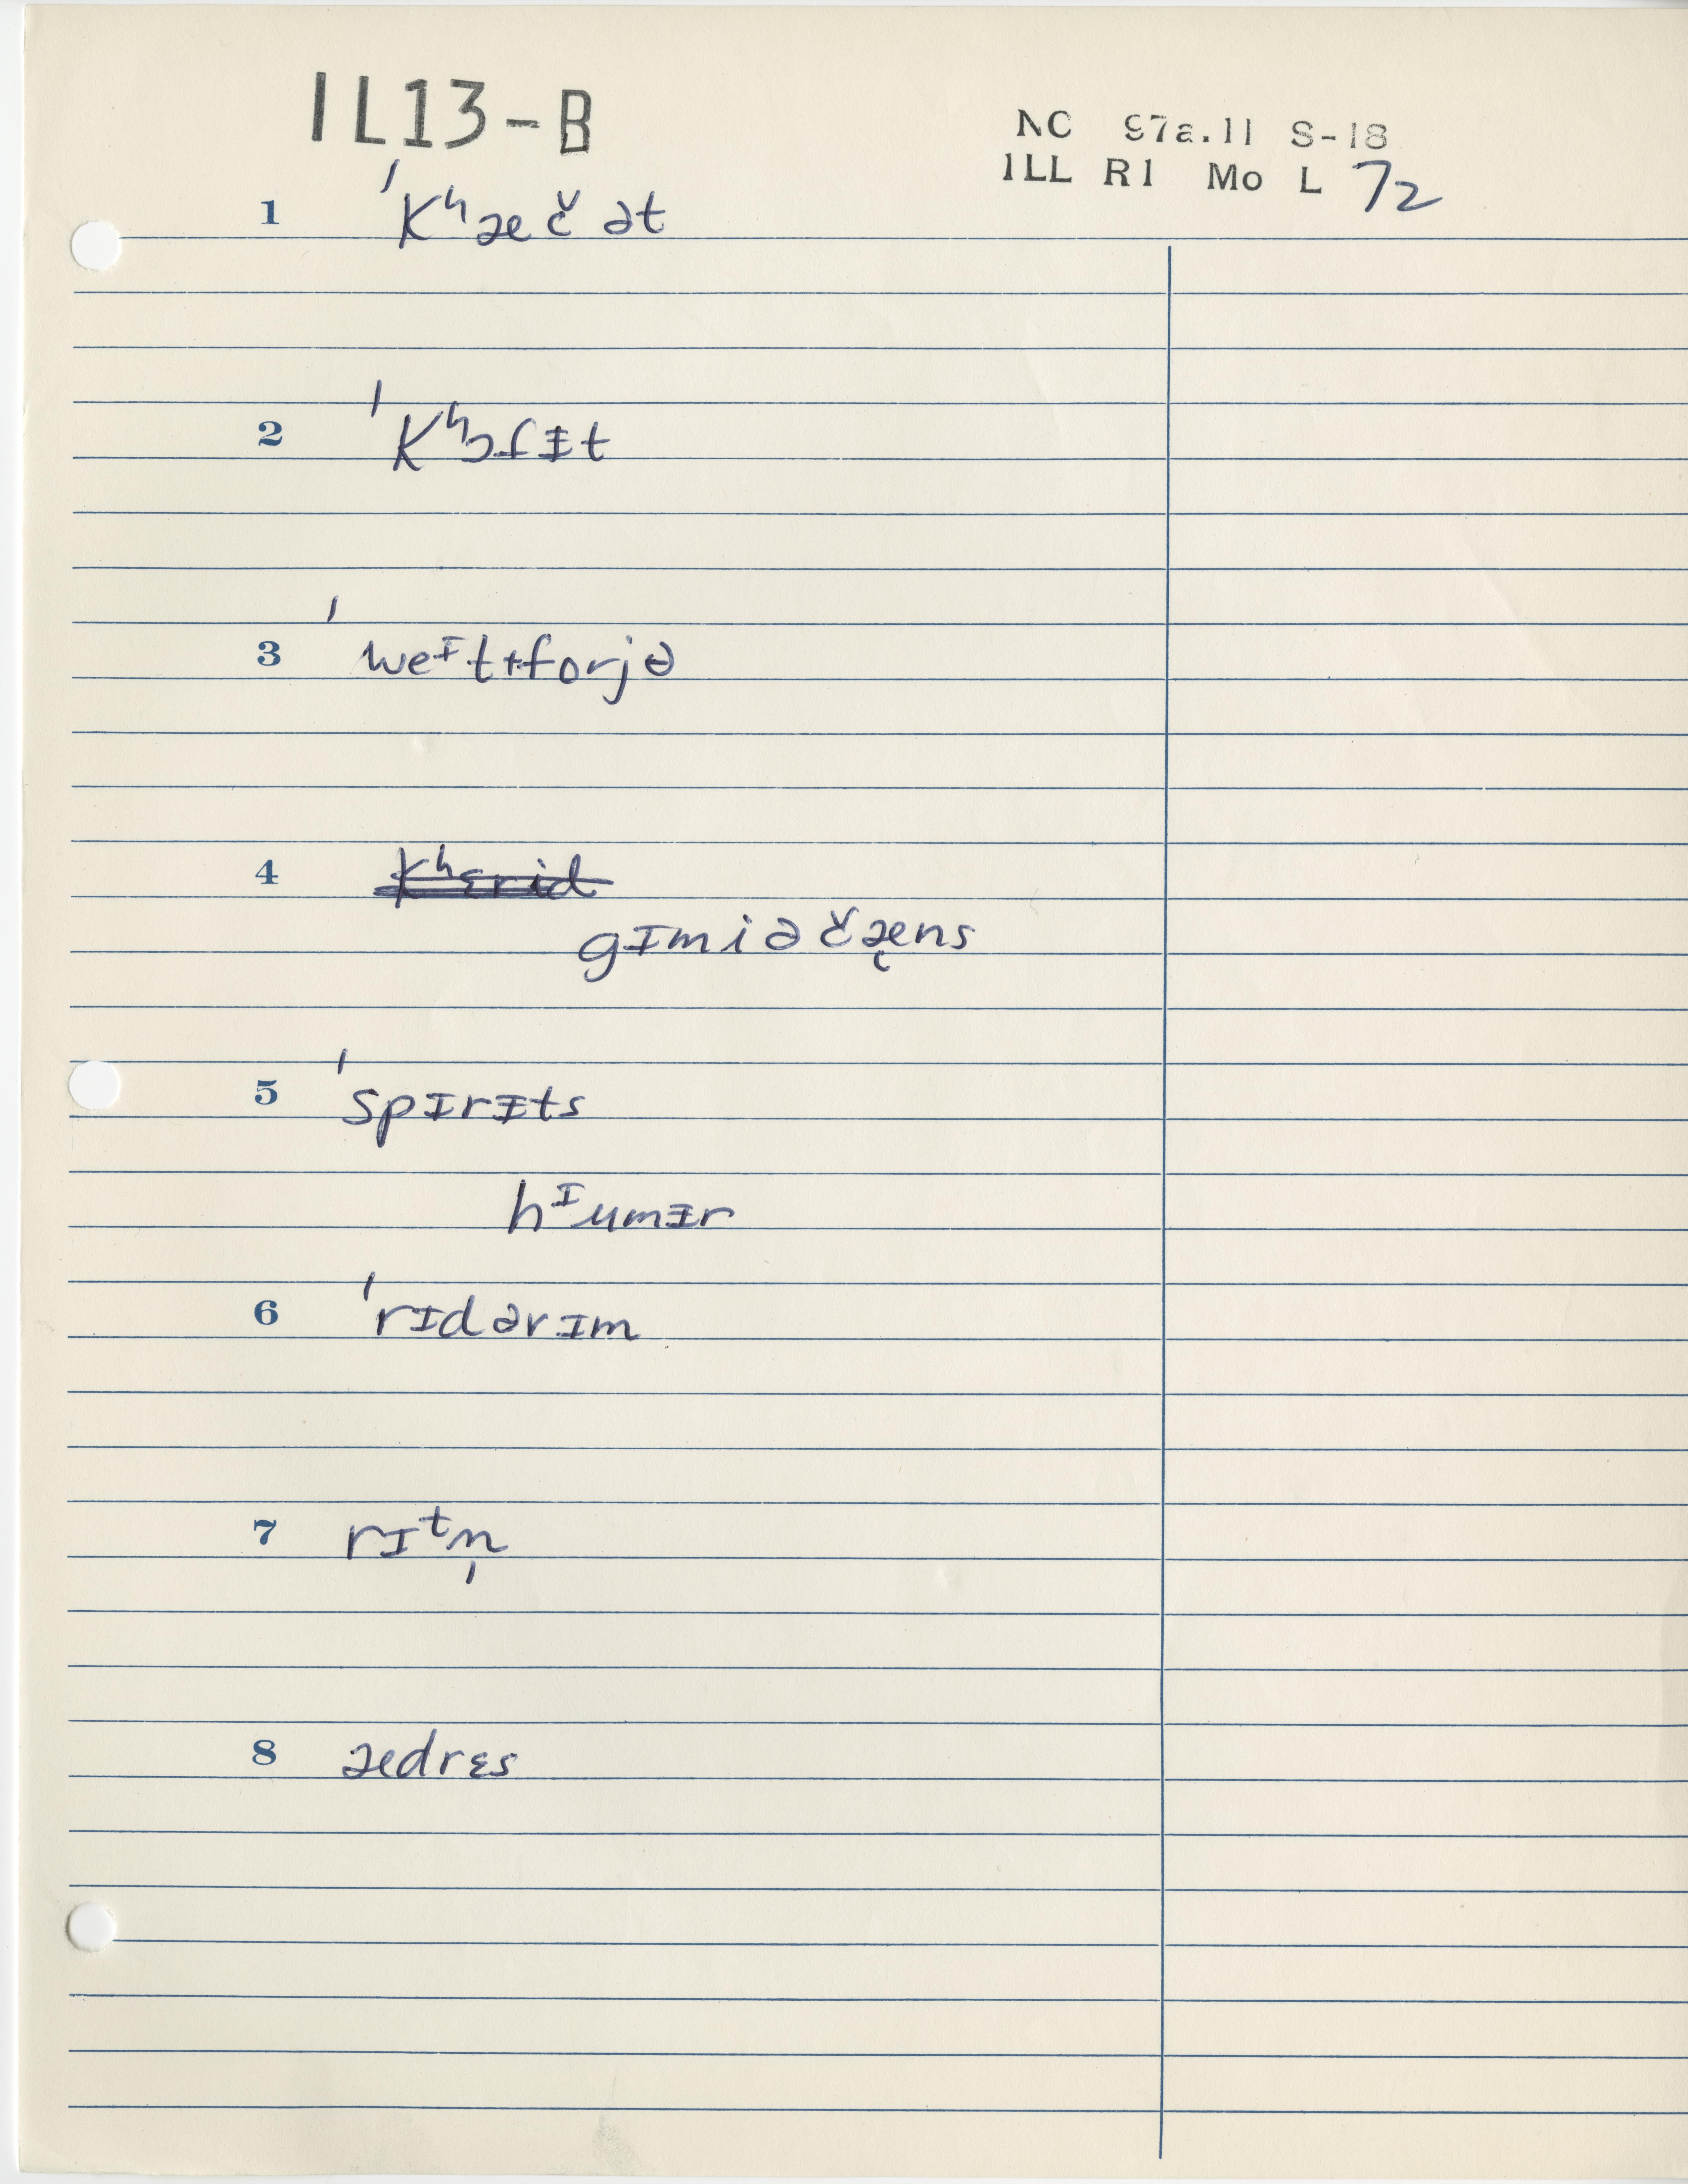 IL13-B
NC 97a.11 S-18
ILL R1 Mo L 72
1 ˈKʰæčət
2 ˈKʰɔfᵻt
3 ˈweᴵtɨforjə
4 K̶ʰ̶ɛ̶r̶i̶d̶
gɪmiəčæ̜ns
5 ˈspɪrᵻts
hᴵumᵻr
6 ˈrɪdərɪm
7 rɪᵗn̩
8 ædrɛs